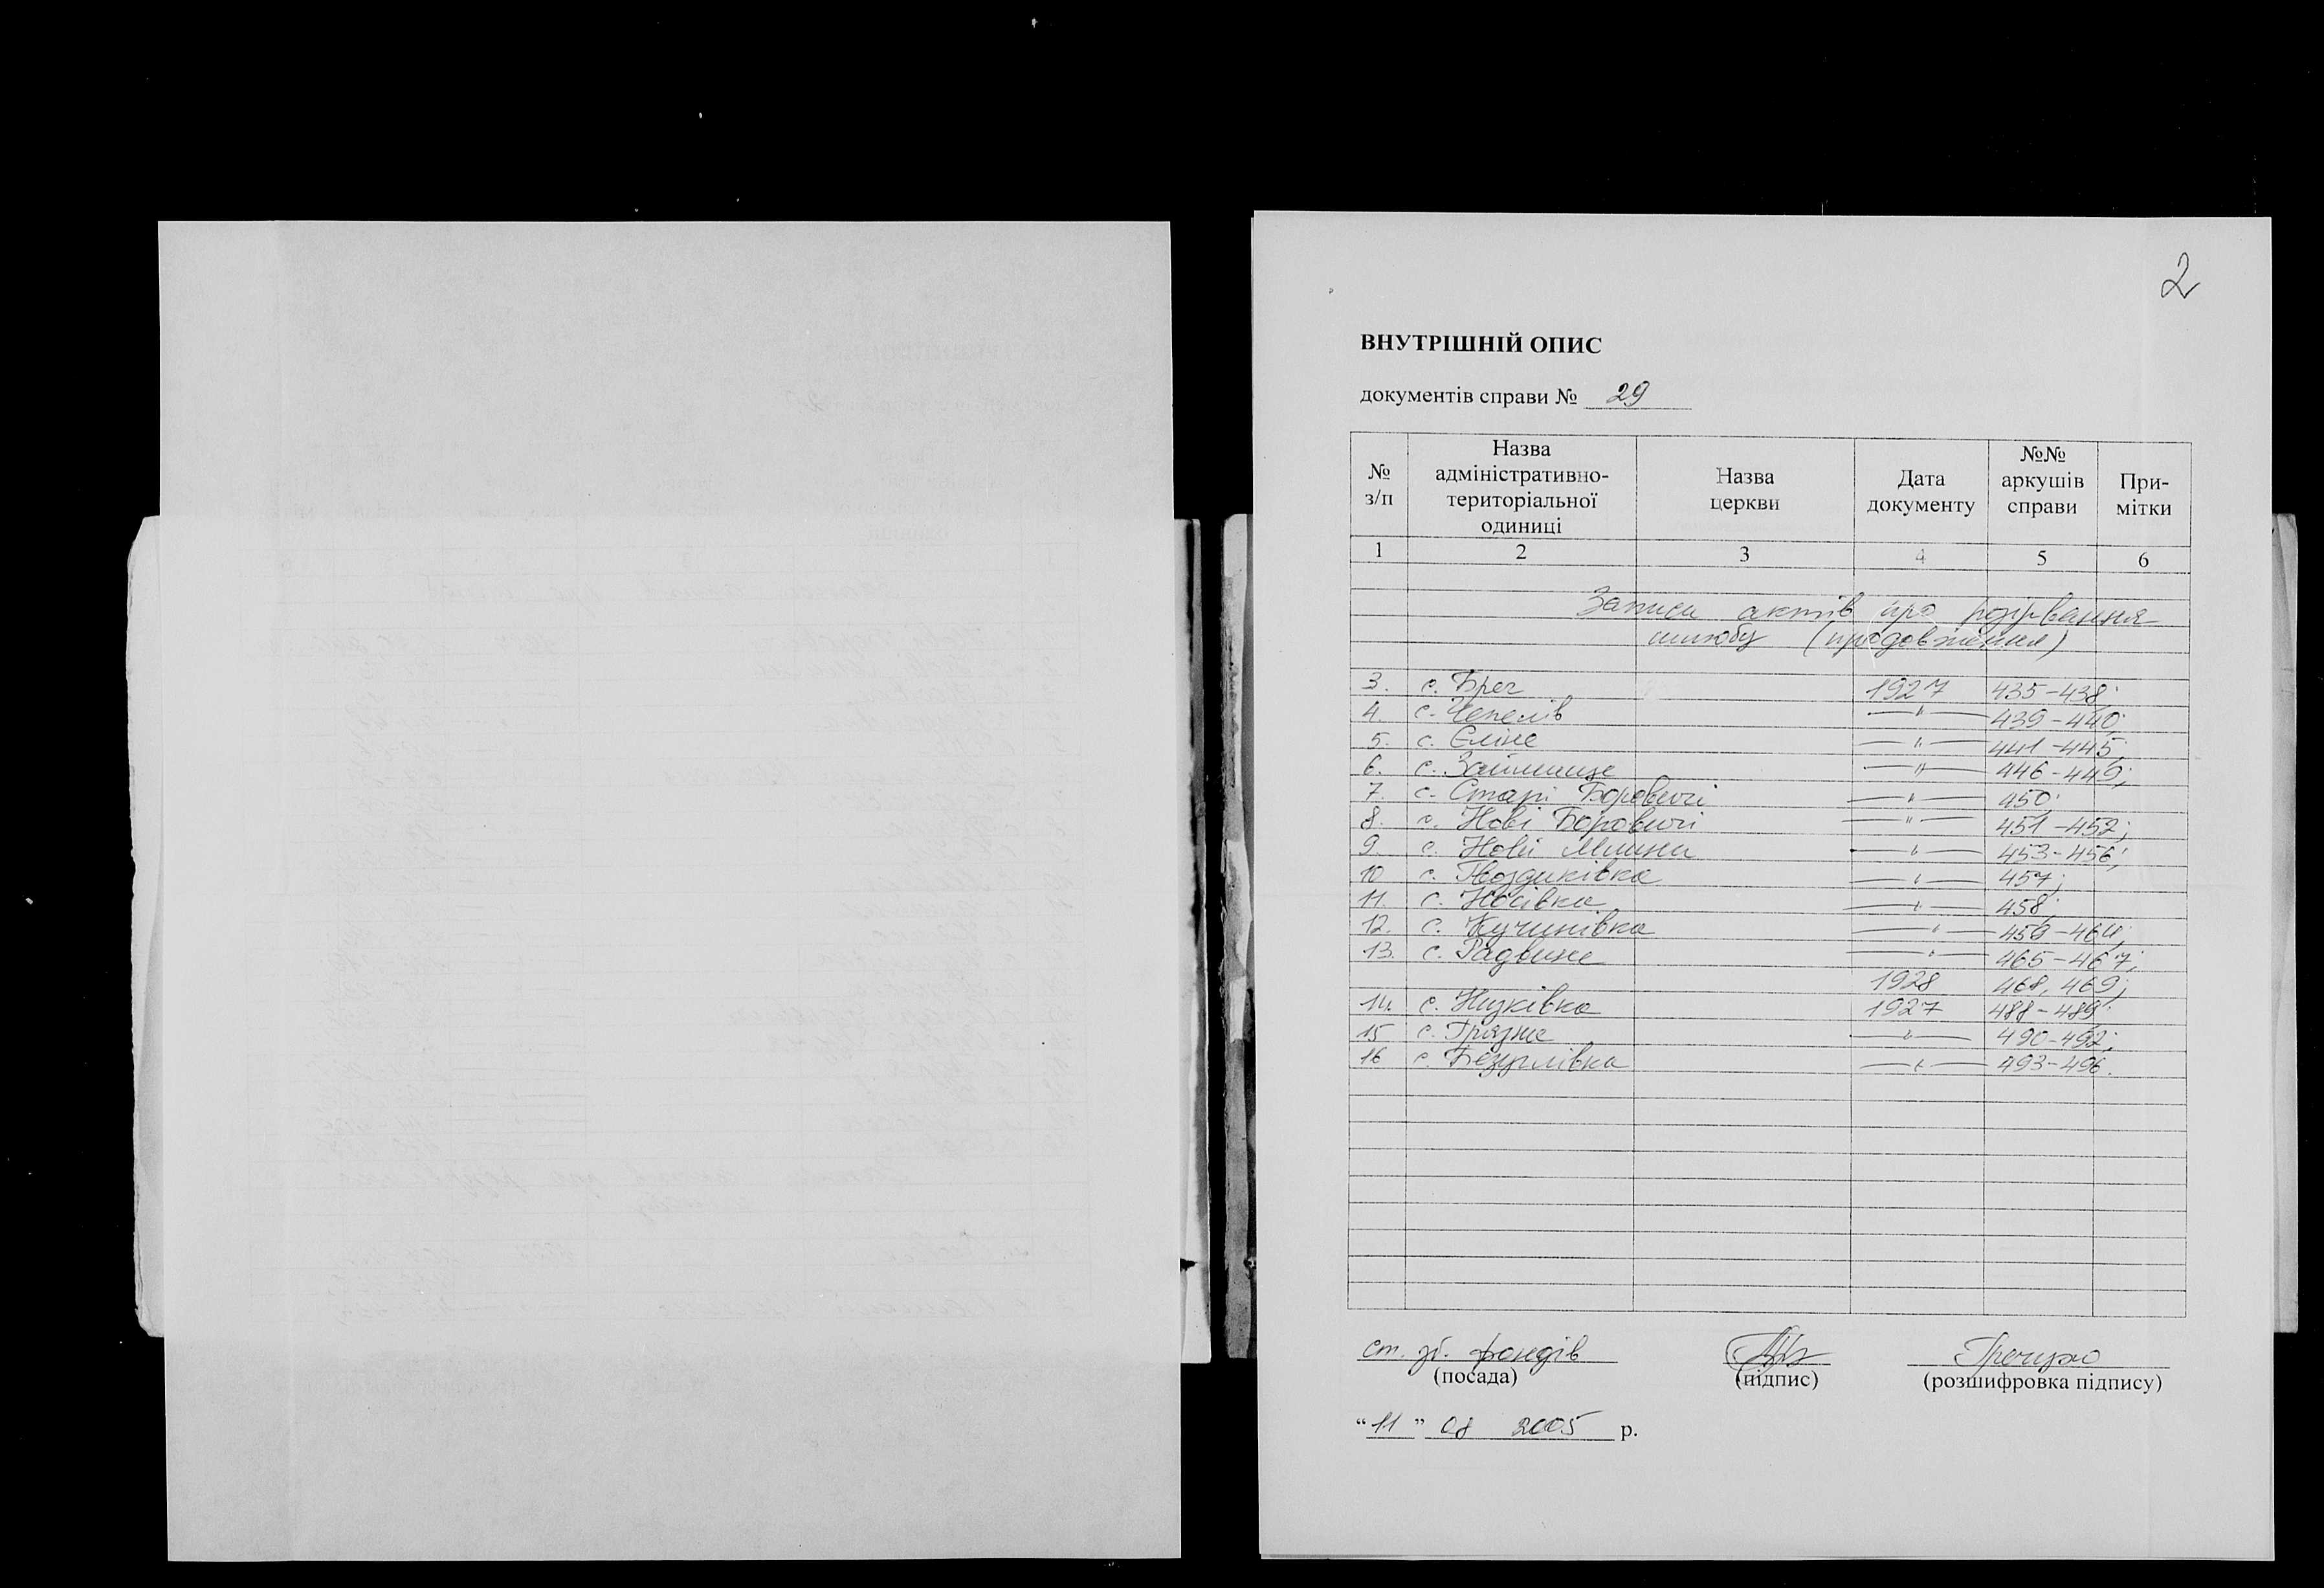 2
ВНУТРІШНІЙ ОПИС
документів справи № 29
№ з/п
Назва адміністративно-територіальної одиниці
Назва церкви
Дата документу
№№ аркушів справи
При-мітки
1 2 3 4 5 6
Записи актів про розірвання
шлюбу (продовження)
3. с. Бреч 1927 435-438;
4. с. Чепелів —"— 439-440;
5. с. Єліне —"— 441-445;
6. с. Займище —"— 446-449;
7. с. Старі Боровичі —"— 450;
8. с. Нові Боровичі —"— 451-452;
9. с. Нові Млини —"— 453-456;
10 с. Гвоздиківка —"— 457;
11. с. Носівка —"— 458;
12. с. Кучинівка —"— 459-464;
13. с. Радвине —"— 465-467;
1928 468, 469;
14. с. Низківка 1927 488-489;
15 с. Грязне —"— 490-492;
16 с. Безуглівка —"— 493-496.
ст. зб. фондів
(посада) (підпис) (розшифровка підпису)
“11” 08 2005 р.